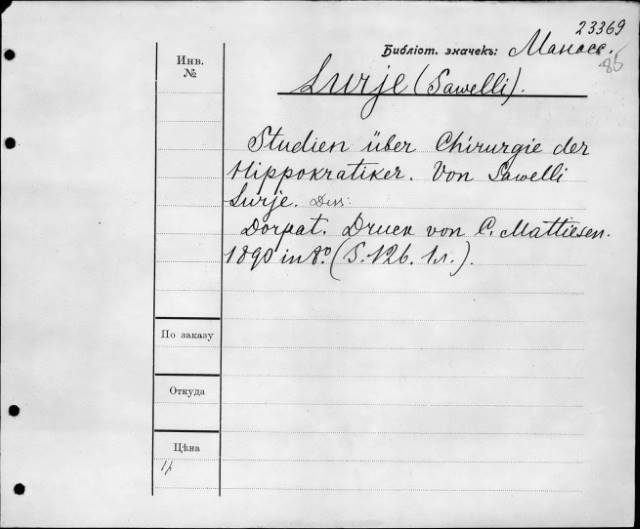 23369
Инв.
№
Библіот. значекъ: Манасс.
85
Lurje (Sawelli).
Studien über Chirurgie der
Hippokratiker. Von Sawelli
Lurje. Diss.
Dorpat. Druck von C. Mattiesen.
1890 in 8º. (S. 126. 1л.).
По заказу
Откуда
Цѣна